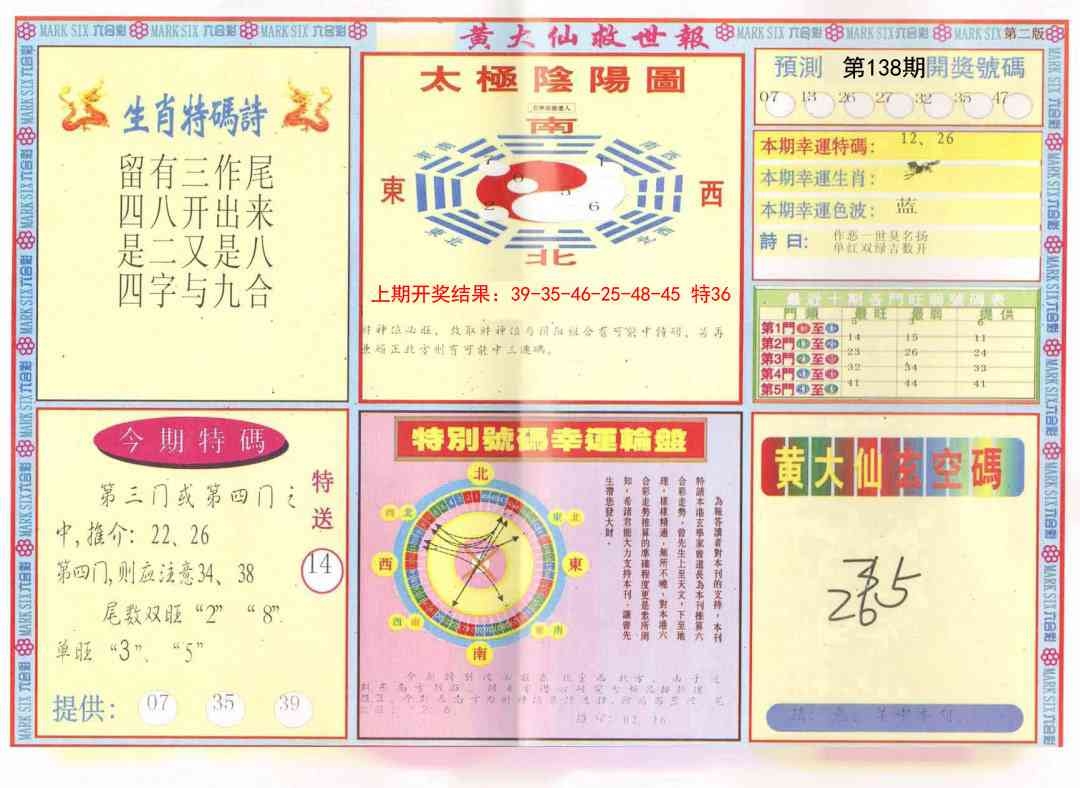 MARK SIX 六合彩 MARK SIX 六合彩 MARK SIX 六合彩 黄大仙救世報 MARK SIX 六合彩 MARK SIX 六合彩 MARK SIX 第二版
生肖特碼詩
留有三作尾
四八开出来
是二又是八
四字与九合
太極陰陽圖
南
東
西
北
東北
上期开奖结果：39-35-46-25-48-45 特36
預測 第138期開獎號碼
07 13 26 27 32 35 47
本期幸運特碼： 12、26
本期幸運生肖：
本期幸運色波： 蓝
詩曰：
作恶一世臭名扬
单红双绿吉数开
最近十期各門旺弱號碼表
門類 最旺 最弱 提供
第1門 至 5 3 6
第2門 至 14 15 11
第3門 至 23 26 24
第4門 至 32 34 33
第5門 至 41 44 41
今期特碼
第三门或第四门之
中,推介：22、26
第四门,则应注意34、38
尾数双旺“2” “8”
单旺 “3”、“5”
特送
14
提供： 07 35 39
特別號碼幸運輪盤
北
西北
東北
西
東
西南
東南
南
為報答讀者對本刊的支持，本刊
特請本港玄學家曾道長為本刊推算六
合彩走勢，曾先生上至天文，下至地
理，樣樣精通，無所不曉，對本港六
合彩走勢推算的準確程度更是眾所周
知，希諸君能大力支持本刊，讓曾先
生帶您發大財。
黄大仙玄空碼
265